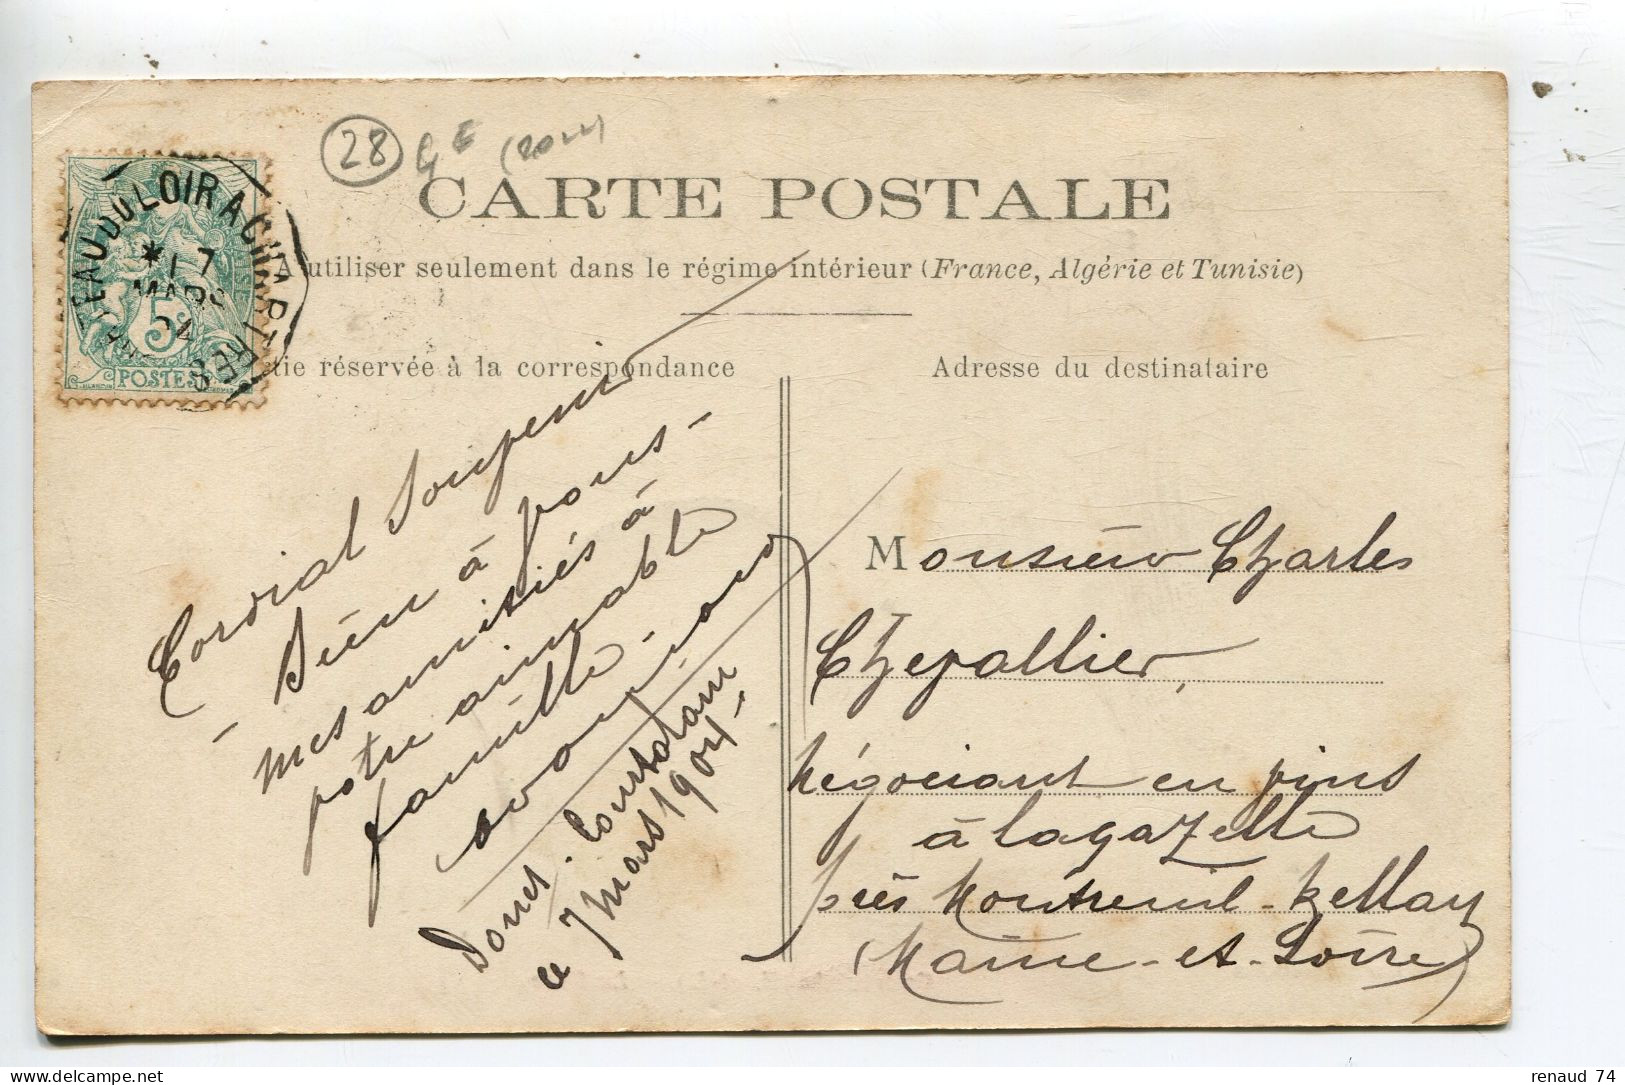 28 GE
CARTE POSTALE
A utiliser seulement dans le régime intérieur (France, Algérie et Tunisie)
tie réservée à la correspondance
Adresse du destinataire
TEAU DU LOIR A CHARTRES
1 7
MARS
04
5c
POSTES
Cordial Souvenir
- Bien à vous -
mes amitiés à
votre aimable
famille -
Donet Courtalain
ce 7 Mars 1904 -
Monsieur Charles
Chevallier,
Négociant en vins
à Lagazelle
près Montreuil-Bellay
(Maine-et-Loire)
renaud 74